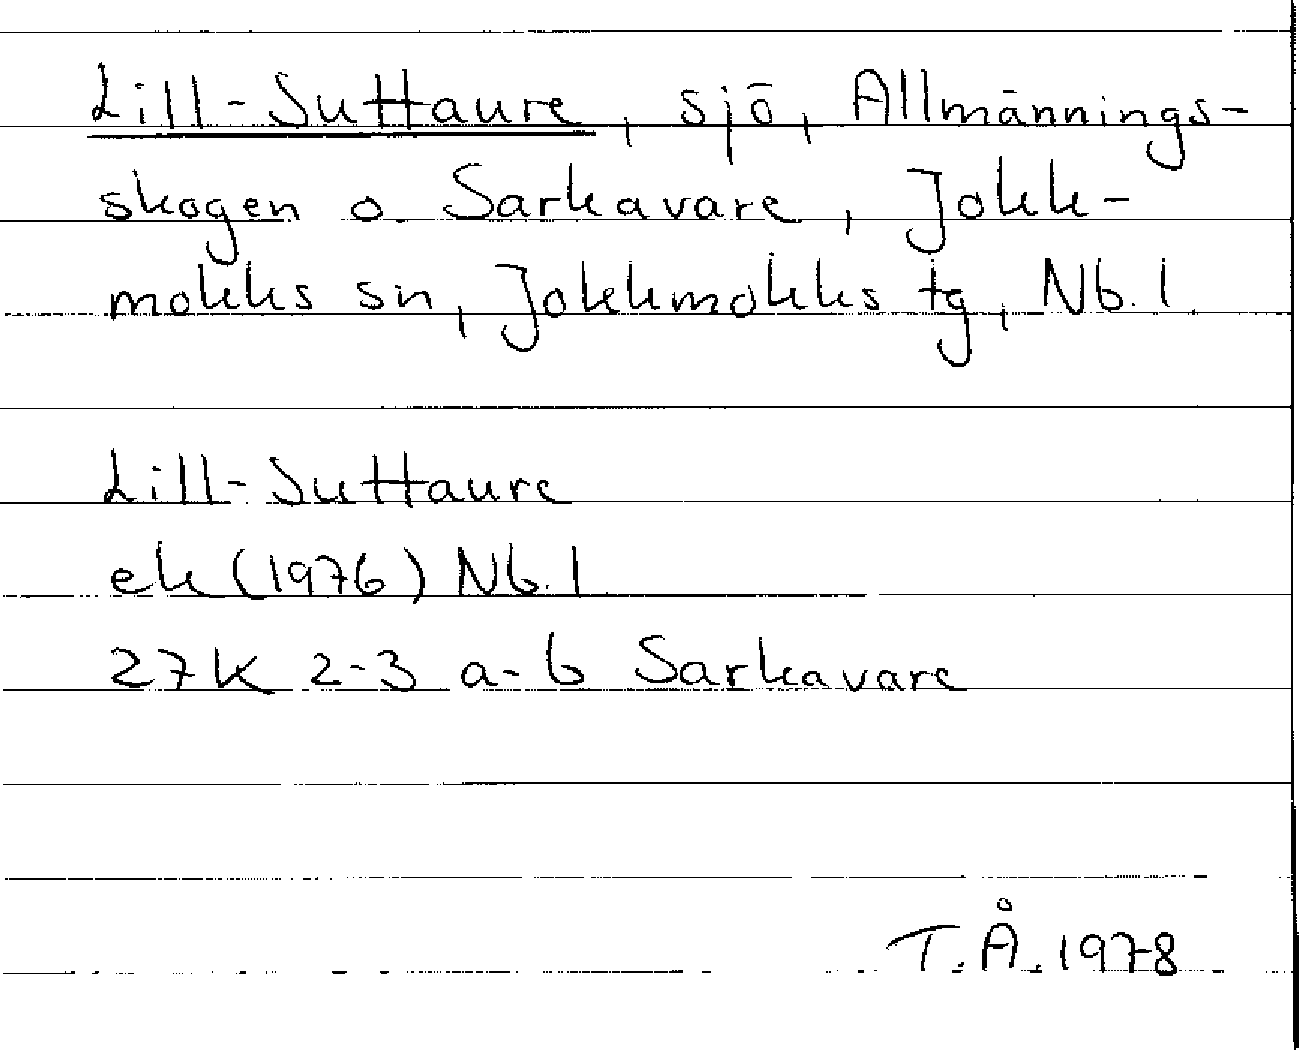 Lill-Suttaure, sjö, Allmännings-
skogen o. Sarkavare, Jokk-
mokks sn, Jokkmokks tg, Nb. l.
Lill-Suttaure
ek (1976) Nb. l
27K 2-3 a-b Sarkavare
T.Å. 1978